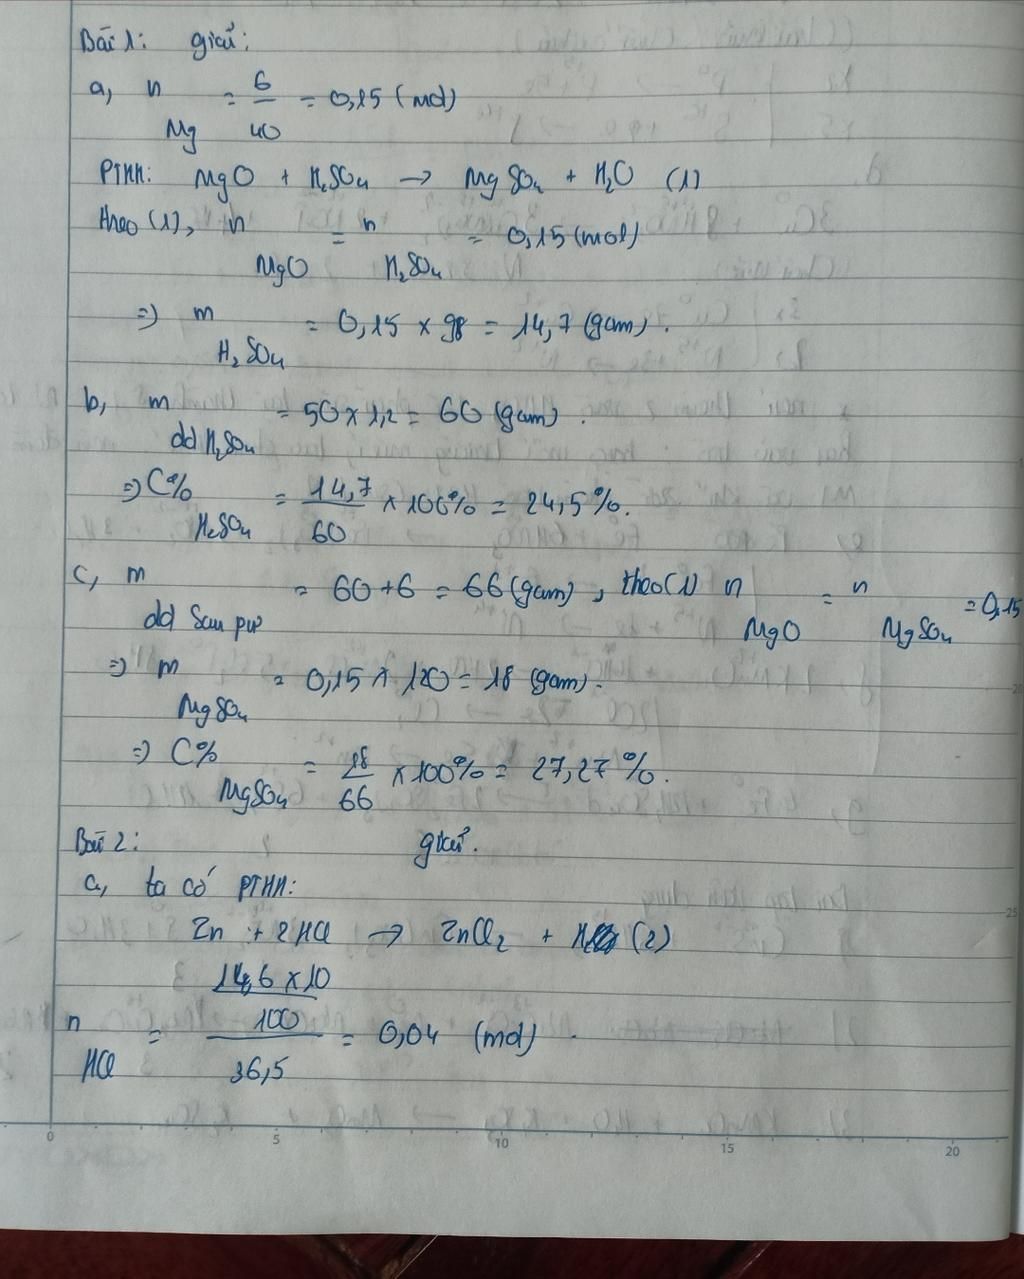 Bài 1: giải:
a, n Mg = 6/40 = 0,15 (mol)
PTHH: MgO + H₂SO₄ → MgSO₄ + H₂O (1)
theo (1), n MgO = n H₂SO₄ = 0,15 (mol)
=> m H₂SO₄ = 0,15 × 98 = 14,7 (gam).
b, m dd H₂SO₄ = 50 × 1,2 = 60 (gam).
=> C% H₂SO₄ = 14,7/60 × 100% = 24,5%.
c, m dd sau pư = 60 + 6 = 66 (gam), theo (1) n MgO = n MgSO₄ = 0,15
=> m MgSO₄ = 0,15 × 120 = 18 (gam).
=> C% MgSO₄ = 18/66 × 100% = 27,27%.
Bài 2: giải.
a, ta có PTHH:
Zn + 2HCl → ZnCl₂ + H₂ (2)
n HCl = (14,6 × 10/100)/36,5 = 0,04 (mol).
0 5 10 15 20
25